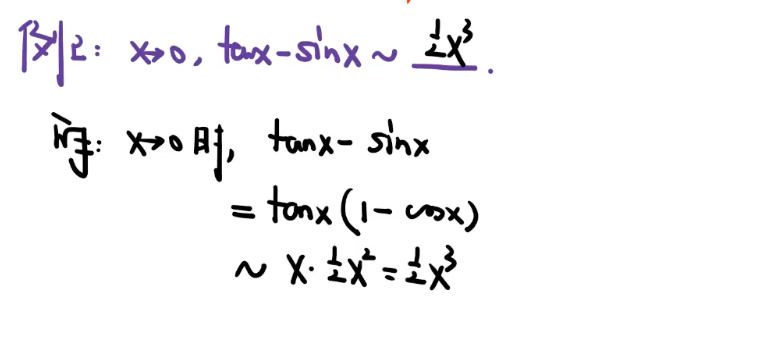 例2: x→0, tanx-sinx ~ ½x³.
解: x→0时, tanx- sinx
= tanx(1-cosx)
~ x·½x²=½x³